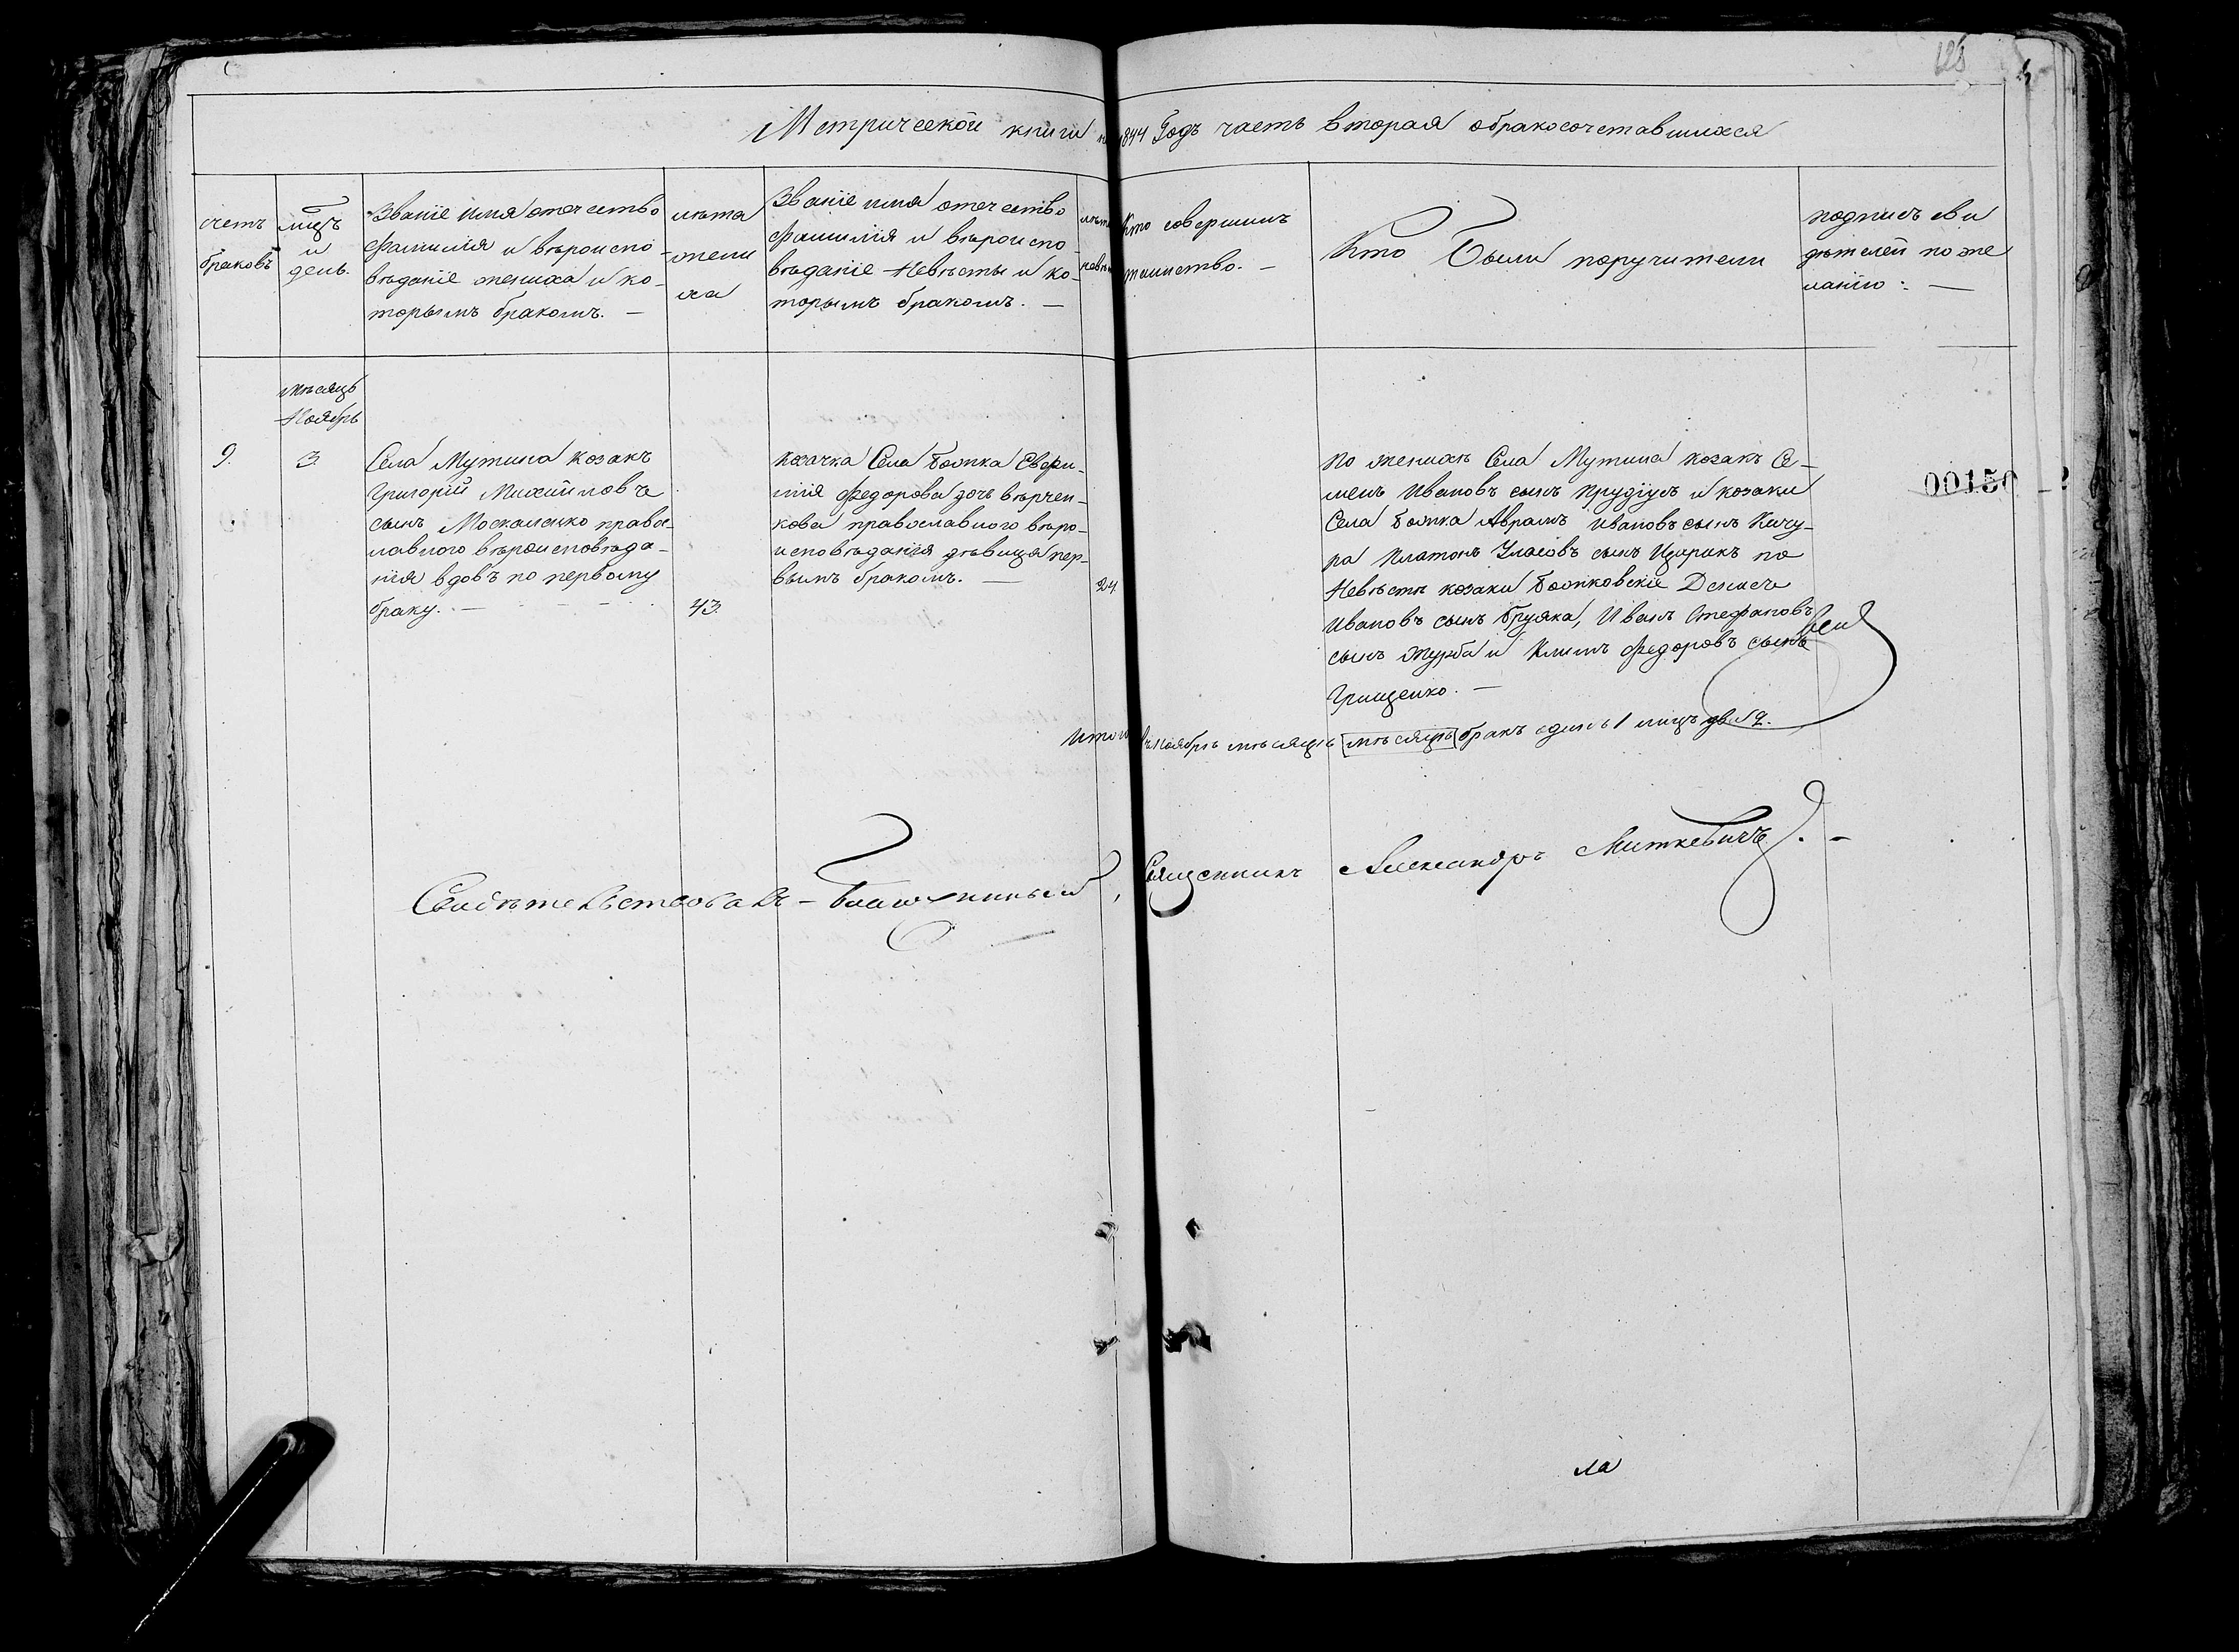 125
Метрической книги на 1844 Годъ часть вторая обракосочетавшихся
счетъ
браковъ
мцъ
и
день.
Званіе имя отечество
фамилія и вѣроиспо-
вѣданіе жениха и ко-
торымъ бракомъ. —
лѣта
жени
ха
Званіе имя отечество
фамилія и вѣроиспо-
вѣданіе Невѣсты и ко-
торымъ бракомъ. —
лѣта
невѣ
Кто совершилъ
таинство. —
Кто Были поручители
подписъ сви
дѣтелей по же
ланію: —
мѣсяцъ
Ноябрь
9.
3.
Села Мутина козакъ
Григорій Михайловъ
сынъ Москаленко правос-
лавного вѣроисповѣда-
нія вдовъ по первому
браку. —
43.
козачка Села Божка Евфи-
мія Федорова дочь вѣрчен-
кова православного вѣро-
исповѣданія дѣвица пер-
вымъ бракомъ. —
24
По женихѣ Села Мутина козакъ Се-
менъ Ивановъ сынъ Прудіусъ и козаки
Села Божка Аврамъ Ивановъ сынъ Кичу-
ра Платонъ Уласовъ сынъ Ицарикъ по
Невѣстѣ козаки Божковскіе Денисъ
Ивановъ сынъ Бруяка, Иванъ Стефановъ
сынъ Журба и Климъ Федоровъ сынъ
Грищенко. —
00150
Итого въ Ноябрѣ мѣсяцѣ мѣсяцѣ бракъ единъ 1 лицъ два 2.
Свидѣтельствовалъ – Благочинный, Священникъ Александръ Миткевичъ. –
ла